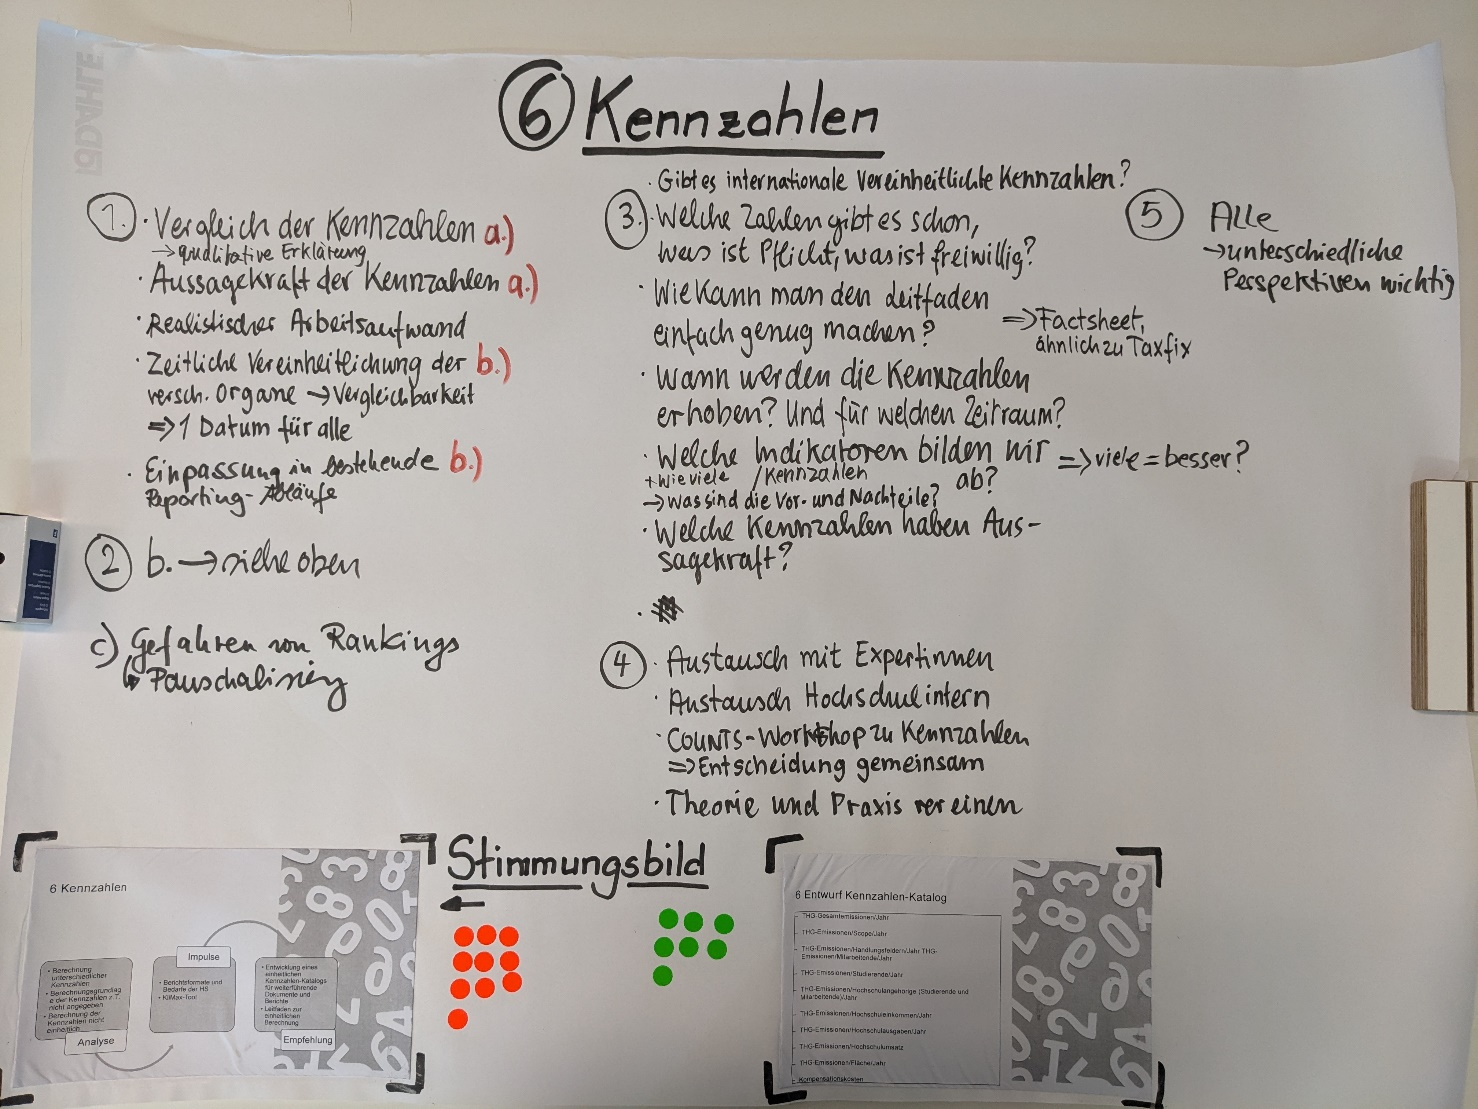 DAHLE
6 Kennzahlen
1. · Vergleich der Kennzahlen a.)
→ qualitative Erklärung
· Aussagekraft der Kennzahlen a.)
· Realistischer Arbeitsaufwand
· Zeitliche Vereinheitlichung der b.)
versch. Organe → Vergleichbarkeit
⇒ 1 Datum für alle
· Einpassung in bestehende b.)
Reporting-Abläufe
2 b. → siehe oben
c) Gefahren von Rankings
↳ Pauschalisierung
· Gibt es internationale Vereinheitlichte Kennzahlen?
3. · Welche Zahlen gibt es schon,
was ist Pflicht, was ist freiwillig?
· Wie Kann man den Leitfaden
einfach genug machen?
⇒ Factsheet,
ähnlich zu Taxfix
· Wann werden die Kennzahlen
erhoben? Und für welchen Zeitraum?
· Welche Indikatoren bilden wir ⇒ viele = besser?
+ wie viele / Kennzahlen ab?
→ Was sind die Vor- und Nachteile?
· Welche Kennzahlen haben Aus-
sagekraft?
4 · Austausch mit Expertinnen
· Austausch Hochschulintern
· COUNTS-Workshop zu Kennzahlen
⇒ Entscheidung gemeinsam
· Theorie und Praxis vereinen
5 Alle
→ unterschiedliche
Perspektiven wichtig
Stimmungsbild
←
6 Kennzahlen
Impulse
• Berechnung
unterschiedlicher
Kennzahlen
• Berechnungsgrundlag
e der Kennzahlen z.T.
nicht angegeben
• Berechnung der
Kennzahlen nicht
einheitlich
Analyse
• Berichtsformate und
Bedarfe der HS
• KliMax-Tool
• Entwicklung eines
einheitlichen
Kennzahlen-Katalogs
für weiterführende
Dokumente und
Berichte
• Leitfaden zur
einheitlichen
Berechnung
Empfehlung
6 Entwurf Kennzahlen-Katalog
THG-Gesamtemissionen/Jahr
THG-Emissionen/Scope/Jahr
THG-Emissionen/Handlungsfeldern/Jahr THG-
Emissionen/Mitarbeitende/Jahr
THG-Emissionen/Studierende/Jahr
THG-Emissionen/Hochschulangehörige (Studierende und
Mitarbeitende)/Jahr
THG-Emissionen/Hochschuleinkommen/Jahr
THG-Emissionen/Hochschulausgaben/Jahr
THG-Emissionen/Hochschulumsatz
THG-Emissionen/Fläche/Jahr
Kompensationskosten